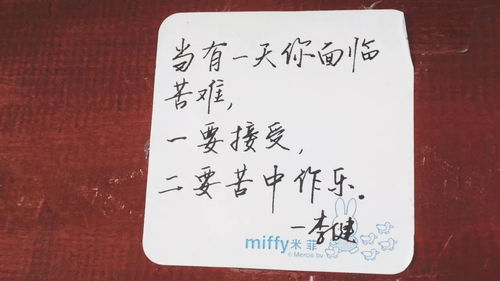 当有一天你面临
苦难,
一要接受,
二要苦中作乐。
一李健
miffy米菲
© Mercis bv